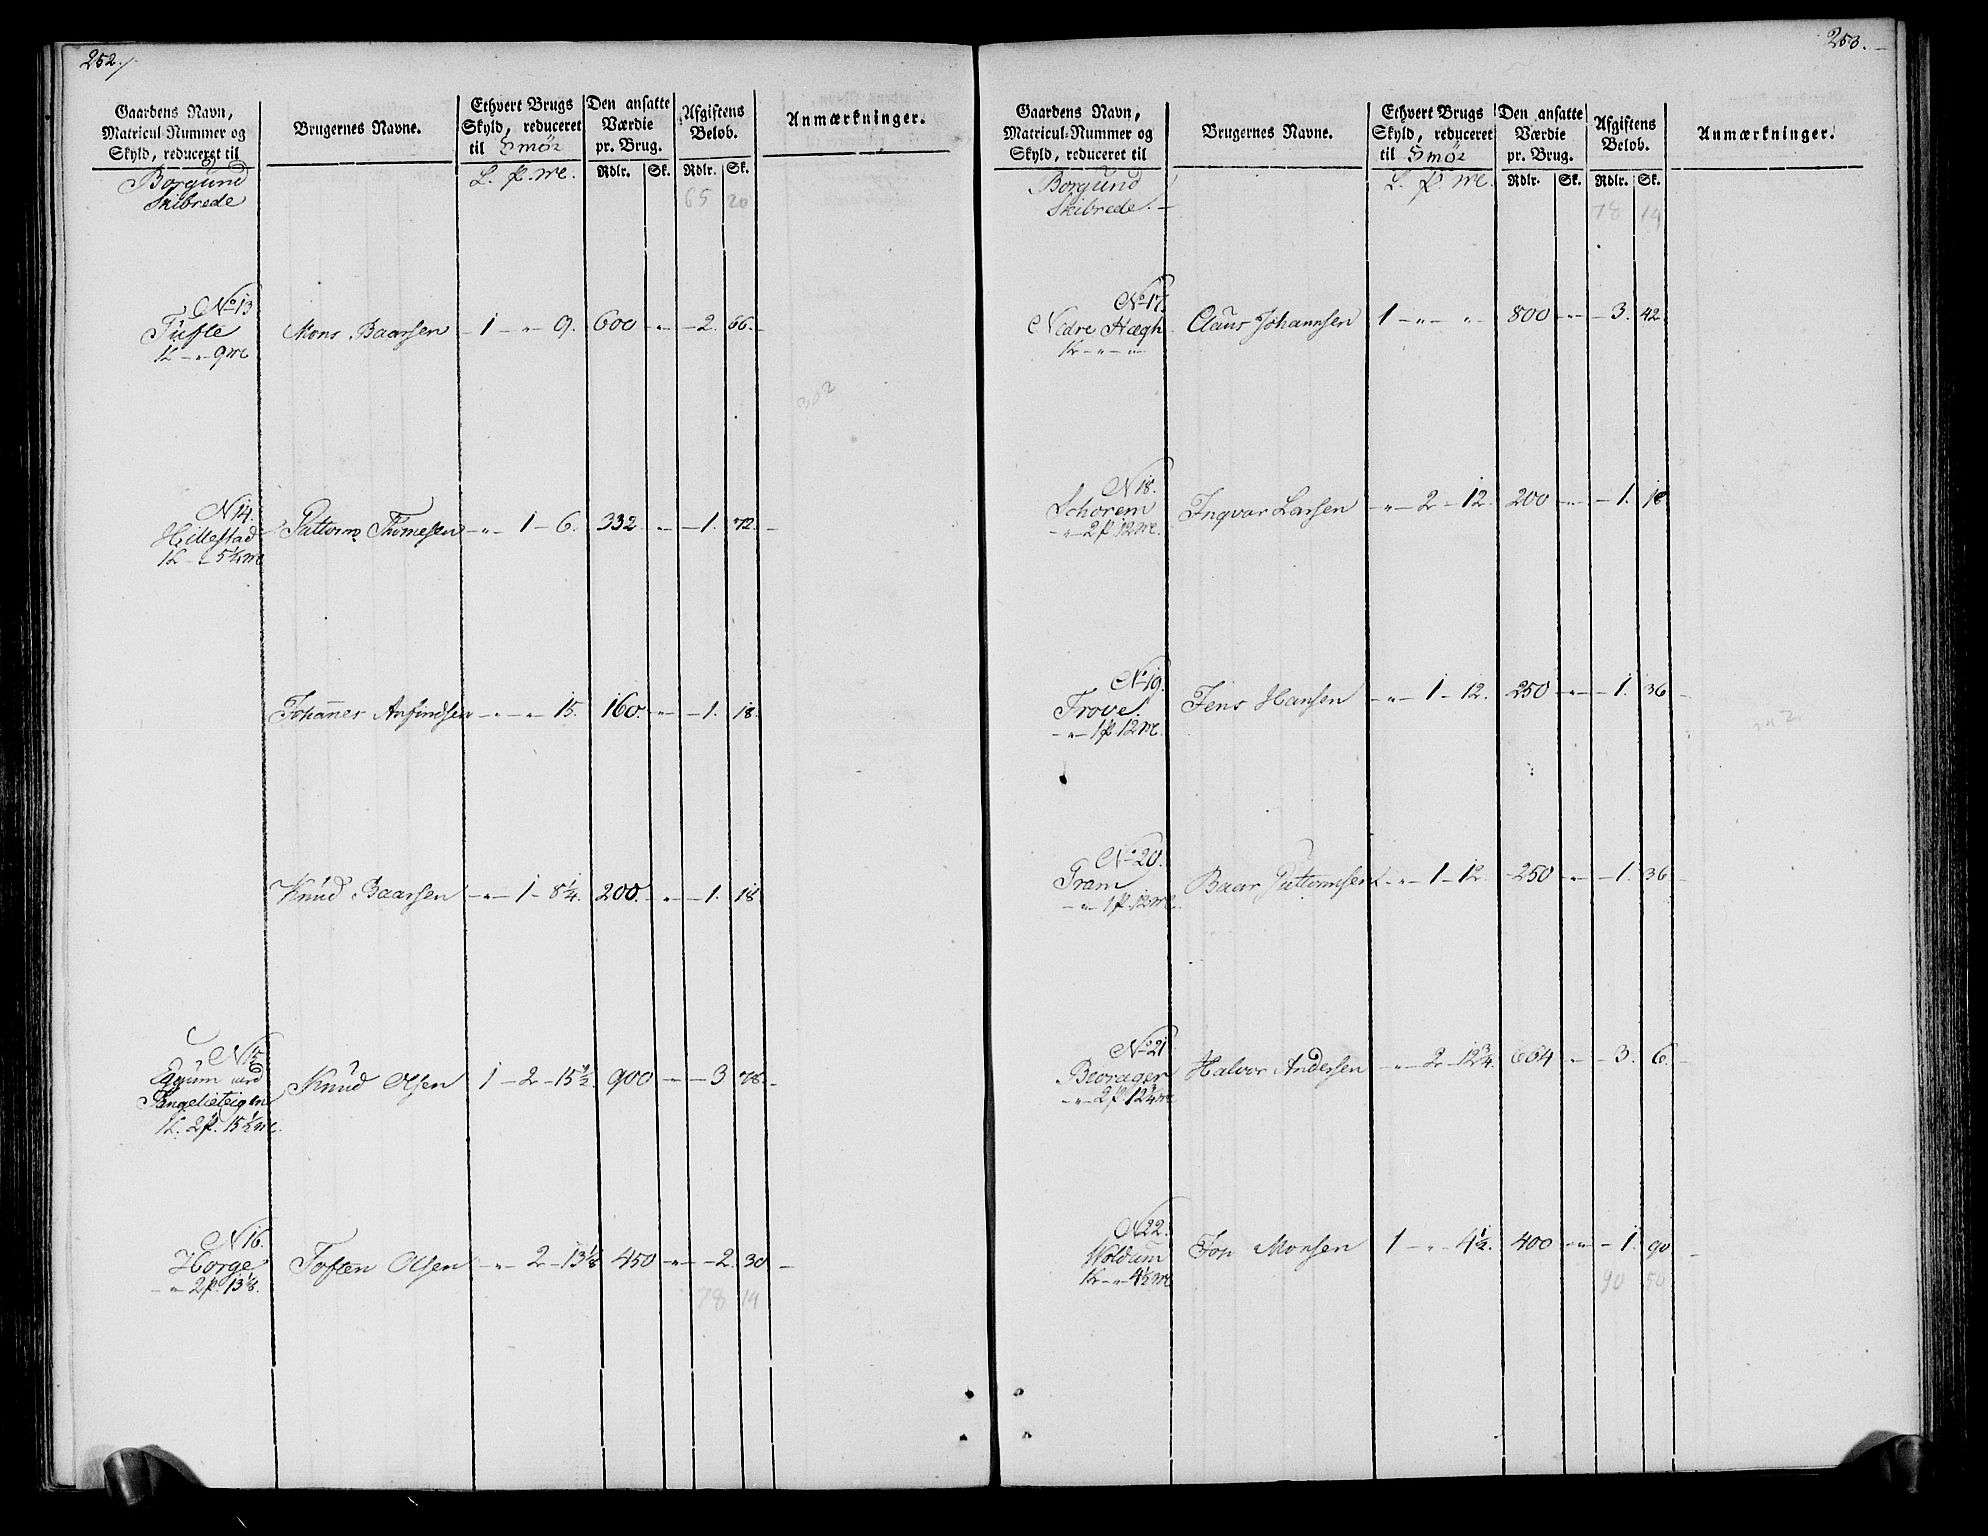 252./.
Gaardens Navn,
Matricul-Nummer og
Skyld, reduceret til
Brugernes Navne.
Ethvert Brugs
Skyld, reduceret
til Smör
Den ansatte
Værdie
pr. Brug.
Afgiftens
Beløb.
Anmærkninger.
L. p. me. Rdlr. Sk. Rdlr. Sk.
Borgund
Skibrede
65 20
No 13
Tufte
1L - " - 9 me
Mons Baarsen 1 - " - 9. 600 - " - 2. 66.
302
N 14.
Hillestad
1L - " - 5¼ me
Guttorm Thomesen - " - 1 - 6. 332 - " - 1. 72. -
Johannes Anfindsen - " - " - 15. 160. - " - 1. 18.
Knud Baarsen - " - 1 - 8¼. 200. - " - 1. 18
N 15
Eggum med
1L. 2p. 15½ me.
Knud Olsen 1 - 2 - 15½ 900 - " - 3 78. -
N 16.
Horge
- " - 2p. 13⅛.
Tosten Olsen - " - 2 - 13⅛ 450 - " - 2. 30 -
78 14
253. -
Gaardens Navn,
Matricul-Nummer og
Skyld, reduceret til
Brugernes Navne.
Ethvert Brugs
Skyld, reduceret
til Smör
Den ansatte
Værdie
pr. Brug.
Afgiftens
Beløb.
Anmærkninger.
L. p. me. Rdlr. Sk. Rdlr. Sk.
Borgund
Skibrede. -
78 14
No 17.
Nedre Hægh
1L - " - " -
Claus Johannsen 1 - " - " 800 - " - 3. 42.
N 18.
Schorem
- " - 2p 12 me.
Ingvar Larsen - " - 2 - 12. 200 - " - 1. 18
No 19.
Trove.
- " - 1p 12 me.
Jens Hansen - " - 1 - 12. 250 - " - 1. 36 -
No 20.
Gram
- " - 1p. 12 me.
Baar Guttormsen - " - 1 - 12. 250 - " - 1. 36 -
No 21
- " - 2p. 12¾ me
Halvor Andersen - " - 2 - 12¾. 664 - " - 3. 6. -
N 22.
Woldum
1L - " - 4½ me
Jon Monsen 1 - " - 4½. 400 - " - 1. 90 -
90 50